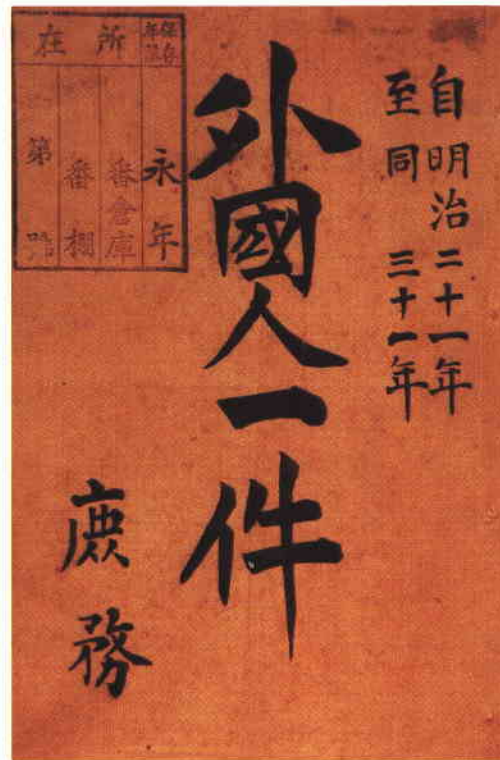 自明治二十一年
至同三十一年
外國人一件
庶務
保存年限
永年
所在
番倉庫
番棚
第號